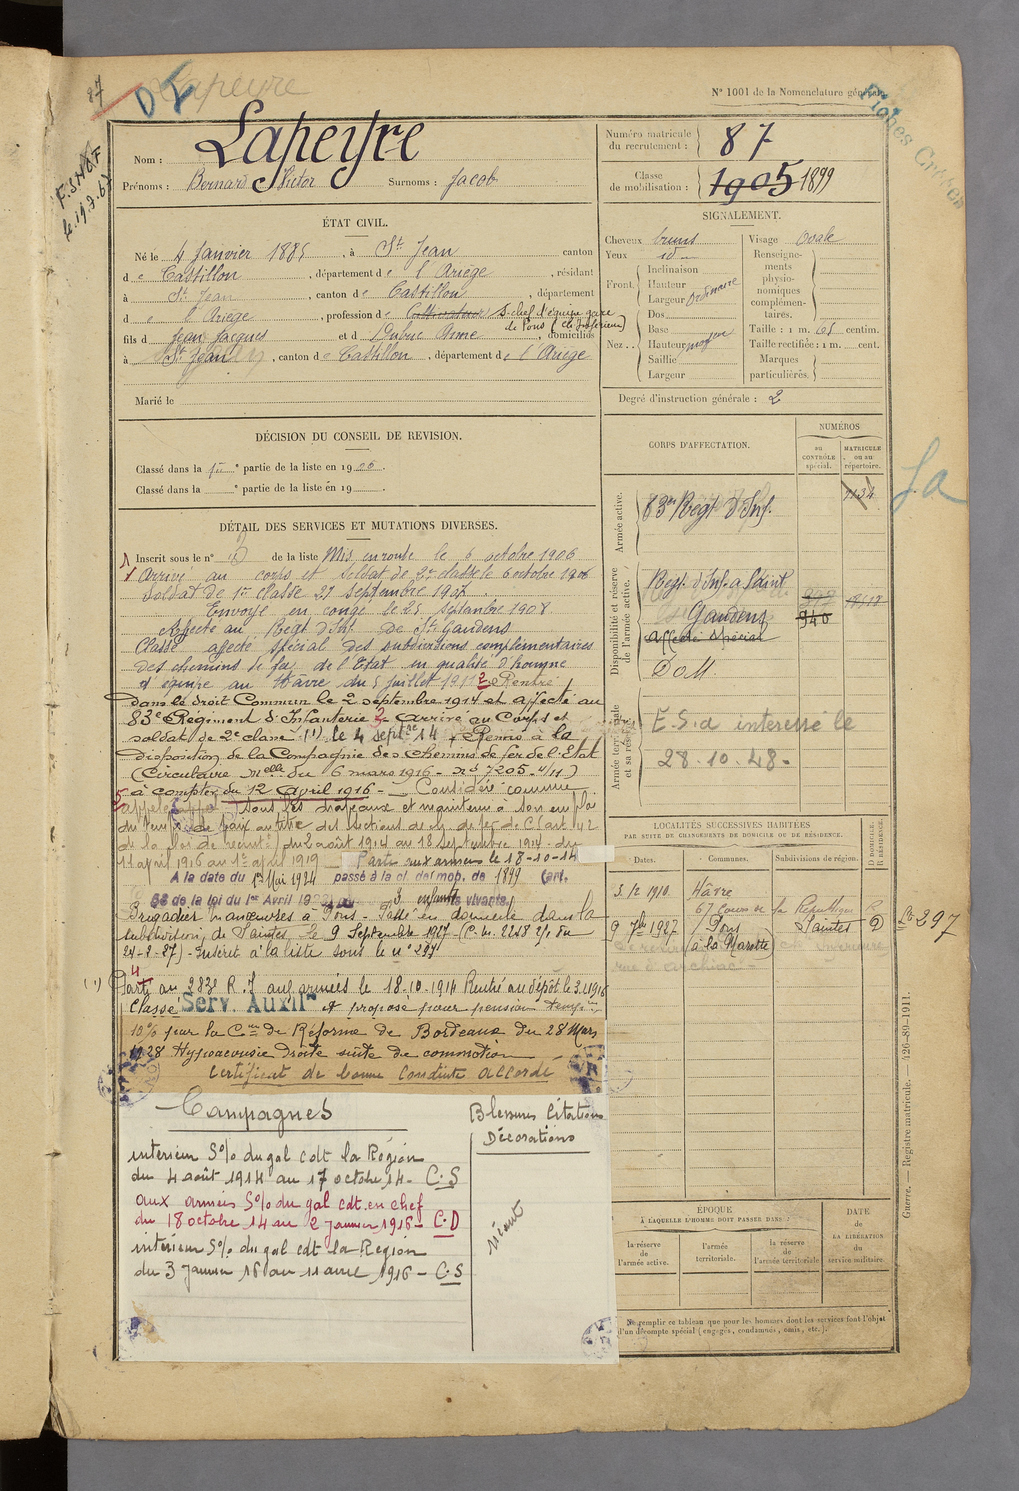 87
Lapeyre
N° 1001 de la Nomenclature générale.
Nom : Lapeyre
Prénoms : Bernard Victor Surnoms : Jacob
Numéro matricule du recrutement : 87
Classe de mobilisation : 1905 1899
ÉTAT CIVIL.
Né le 4 Janvier 1885, à St Jean canton
de Castillon, département de l'Ariège, résidant
à St Jean, canton de Castillon, département
de l'Ariège, profession de Cultivateur S-chef d'équipe gare
de Pons (Cte Inférieure)
fils de Jean Jacques et d Dubuc Anne, domiciliés
à St Jean, canton de Castillon, département de l'Ariège
Marié le
SIGNALEMENT.
Cheveux bruns
Yeux id
Front. Inclinaison
Hauteur
Largeur ordinaire
Nez.. Dos
Base
Hauteur moyen
Saillie
Largeur
Visage ovale
Renseignements physionomiques complémentaires.
Taille : 1 m. 65 centim.
Taille rectifiée : 1 m. cent.
Marques particulières.
Degré d'instruction générale : 2
DÉCISION DU CONSEIL DE REVISION.
Classé dans la 1re partie de la liste en 1906.
Classé dans la e partie de la liste en 19
DÉTAIL DES SERVICES ET MUTATIONS DIVERSES.
Inscrit sous le n° de la liste Mis en route le 6 octobre 1906
Arrivé au corps et soldat de 2e classe le 6 octobre 1906
Soldat de 1re classe 21 septembre 1907.
Envoyé en congé le 25 septembre 1908
Affecté au Regt d'Inf. de St Gaudens
Classé affecté spécial des subdivisions complémentaires
des chemins de fer de l'Etat en qualité d'homme
d'équipe au Hâvre du 5 juillet 1911 2 Rentré
dans le droit Commun le 2 septembre 1914 et affecté au
83e Régiment d'Infanterie 3 Arrivé au Corps et
soldat de 2e classe (1) le 4 septbre 14 Remis à la
disposition de la Compagnie des chemins de fer de l'Etat
(Circulaire melle du 6 mars 1916 - n° 7205 - 4/11)
5 à compter du 12 Avril 1916 - Considéré comme
appelé sous les drapeaux et maintenu à son emploi
du temps de paix au titre des sections de ch. de fer de C art. 42
de la loi de recrutt du 2 août 1914 au 18 septembre 1914. du
11 avril 1916 au 1er avril 1919 - Parti aux armées le 18-10-14
A la date du 1er Mai 1924 passé à la cl. de mob. de 1899 (art.
58 de la loi du 1er Avril 3 enfants vivants.
Brigadier manœuvres à Pons - Passé en domicile dans la
subdivision de Saintes le 9 Septembre 1927 - (C. m. 2218 2/1 du
24-2-27) - inscrit à la liste sous le n° 297
4
(1) Parti au 283e R. I aux armées le 18-10-1914 Rentré au dépôt le 3.1.1916
Classé Serv. Auxil re et proposé pour pension temp.
10% par la Con de Réforme de Bordeaux du 28 Mars
1928 Hypoacousie droite suite de commotion
Certificat de bonne Conduite accordé
Campagnes
intérieur 5% du gal cdt la Région
du 4 août 1914 au 17 octobre 14 - C.S
aux armées 5% du gal cdt en chef
du 18 octobre 14 au 2 janvier 1916 - C.D
intérieur 5% du gal cdt la Région
du 3 Janvier 16 au 11 avril 1916 - C.S
Blessures Citations
Décorations
néant
CORPS D'AFFECTATION.
NUMÉROS
AU CONTRÔLE spécial.
MATRICULE ou au répertoire.
Armée active.
83e Regt d'Inf.
1134
Disponibilité et réserve de l'armée active.
Regt d'Inf. a Saint
Gaudens
940
Affecté spécial
D o M.
Armée territoriale et sa réserve
E.S.a interessé le
28.10.48 -
LOCALITÉS SUCCESSIVES HABITÉES
PAR SUITE DE CHANGEMENTS DE DOMICILE OU DE RÉSIDENCE.
D DOMICILE. R RÉSIDENCE.
Dates. Communes. Subdivisions de région.
3. 12 1910. Hâvre
67 Cours de la République R
9 7bre 1927 Pons Saintes D
(à la Marotte)
rue d'Archiac -
297
ÉPOQUE
À LAQUELLE L'HOMME DOIT PASSER DANS :
la réserve de l'armée active.
l'armée territoriale.
la réserve de l'armée territoriale
DATE de LA LIBÉRATION du service militaire.
Ne remplir ce tableau que pour les hommes dont les services font l'objet
d'un décompte spécial (engagés, condamnés, omis, etc.).
Guerre. — Registre matricule. — 426-89-1911.